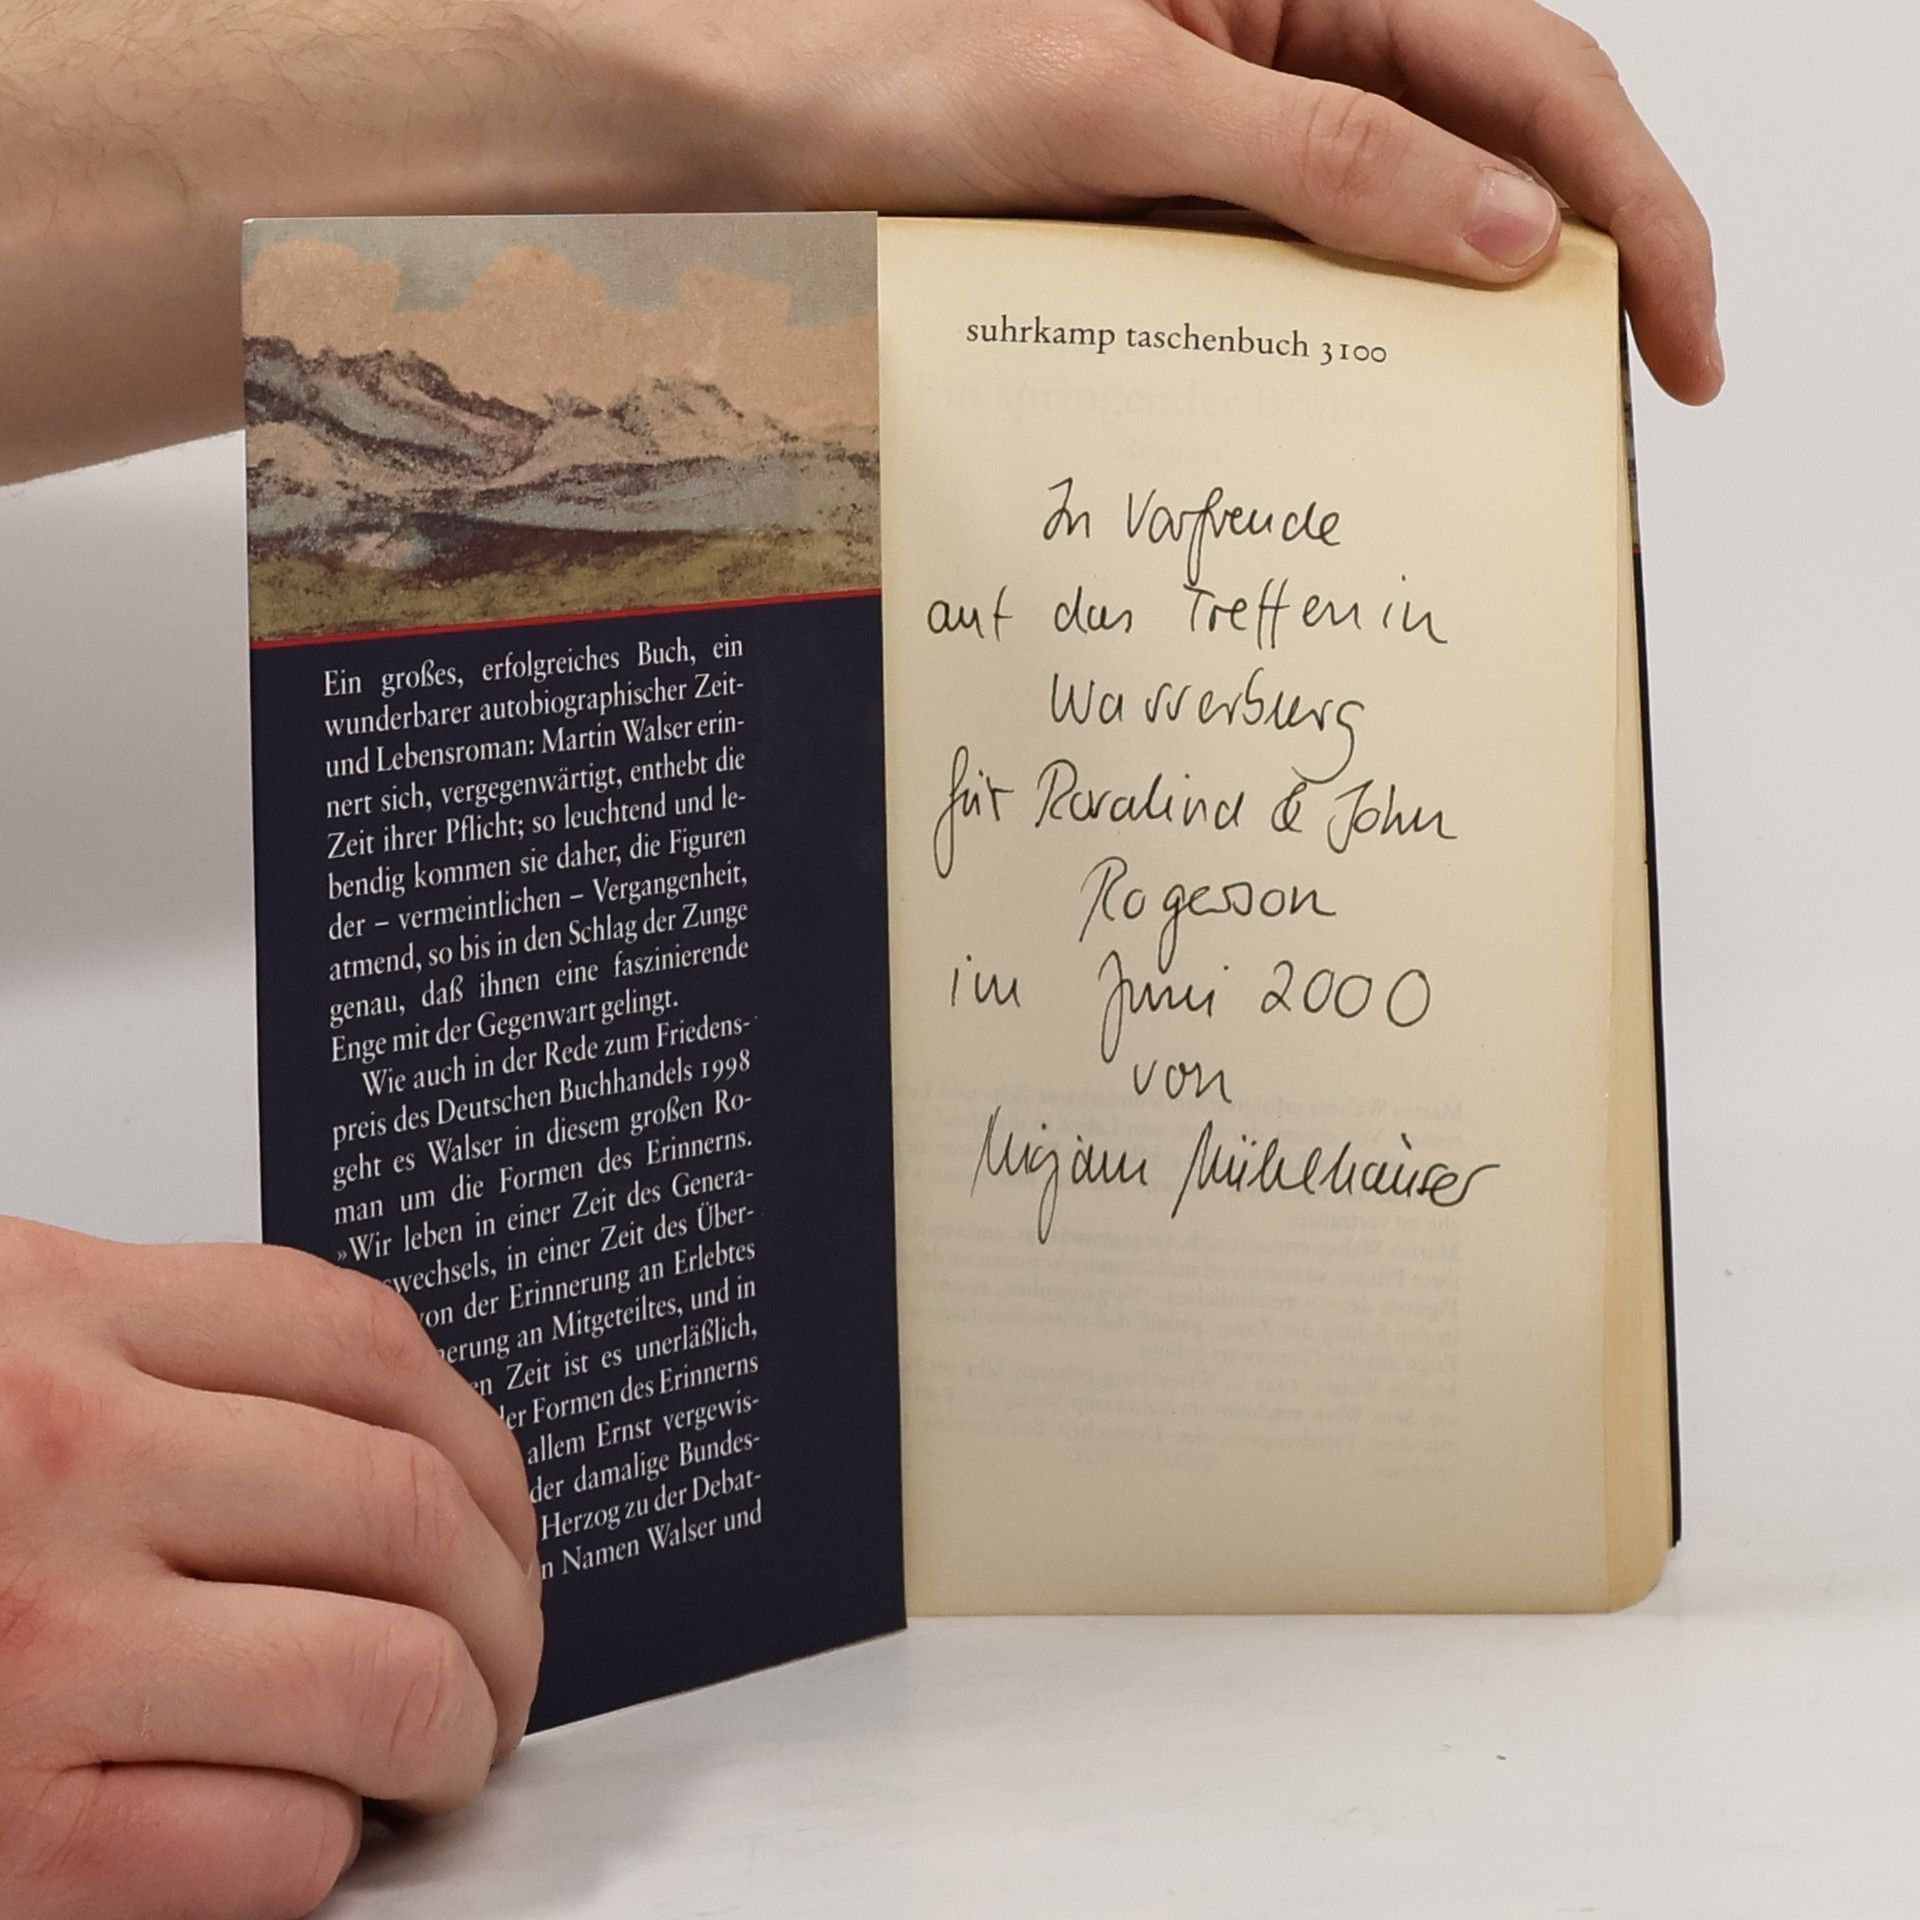 Ein großes, erfolgreiches Buch, ein
wunderbarer autobiographischer Zeit-
und Lebensroman: Martin Walser erin-
nert sich, vergegenwärtigt, enthebt die
Zeit ihrer Pflicht; so leuchtend und le-
bendig kommen sie daher, die Figuren
der – vermeintlichen – Vergangenheit,
atmend, so bis in den Schlag der Zunge
genau, daß ihnen eine faszinierende
Enge mit der Gegenwart gelingt.
Wie auch in der Rede zum Friedens-
preis des Deutschen Buchhandels 1998
geht es Walser in diesem großen Ro-
man um die Formen des Erinnerns.
»Wir leben in einer Zeit des Genera-
wechsels, in einer Zeit des Über-
von der Erinnerung an Erlebtes
nerung an Mitgeteiltes, und in
en Zeit ist es unerläßlich,
der Formen des Erinnerns
allem Ernst vergewis-
der damalige Bundes-
Herzog zu der Debat-
n Namen Walser und
suhrkamp taschenbuch 3100
In Vorfreude
auf das Treffen in
Wasserburg
für Rosalind & John
Rogerson
im Juni 2000
von
Mirjam Mühlhäuser